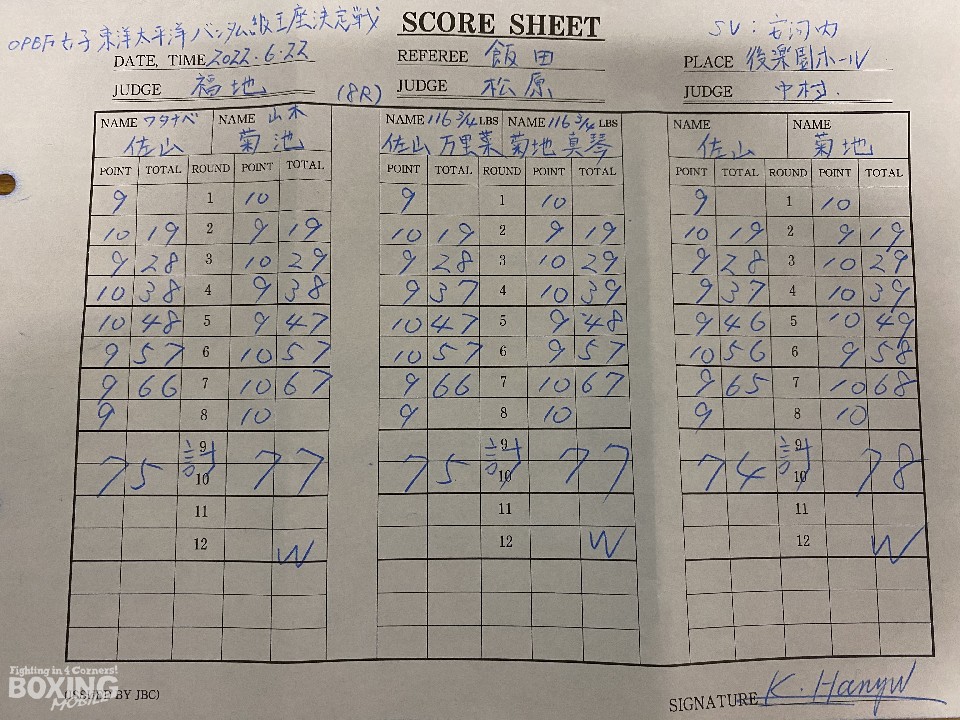 OPBF女子東洋太平洋バンタム級王座決定戦
SCORE SHEET
SV:安河内
DATE, TIME 2022.6.22
REFEREE 飯田
PLACE 後楽園ホール
JUDGE 福地 (8R) JUDGE 松原 JUDGE 中村.
NAME ワタナベ NAME 山木 NAME 116 3/4 LBS NAME 116 3/4 LBS NAME NAME
佐山 菊池 佐山 万里菜 菊地 真琴 佐山 菊地
POINT TOTAL ROUND POINT TOTAL POINT TOTAL ROUND POINT TOTAL POINT TOTAL ROUND POINT TOTAL
9 1 10 9 1 10 9 1 10
10 19 2 9 19 10 19 2 9 19 10 19 2 9 19
9 28 3 10 29 9 28 3 10 29 9 28 3 10 29
10 38 4 9 38 9 37 4 10 39 9 37 4 10 39
10 48 5 9 47 10 47 5 9 48 9 46 5 10 49
9 57 6 10 57 10 57 6 9 57 10 56 6 9 58
9 66 7 10 67 9 66 7 10 67 9 65 7 10 68
9 8 10 9 8 10 9 8 10
9 9 9
75 計 77 75 計 77 74 計 78
10 10 10
11 11 11
12 W 12 W 12 W
Fighting in 4 Corners!
BOXING
MOBILE
(ISSUED BY JBC)
SIGNATURE K. Hanyu